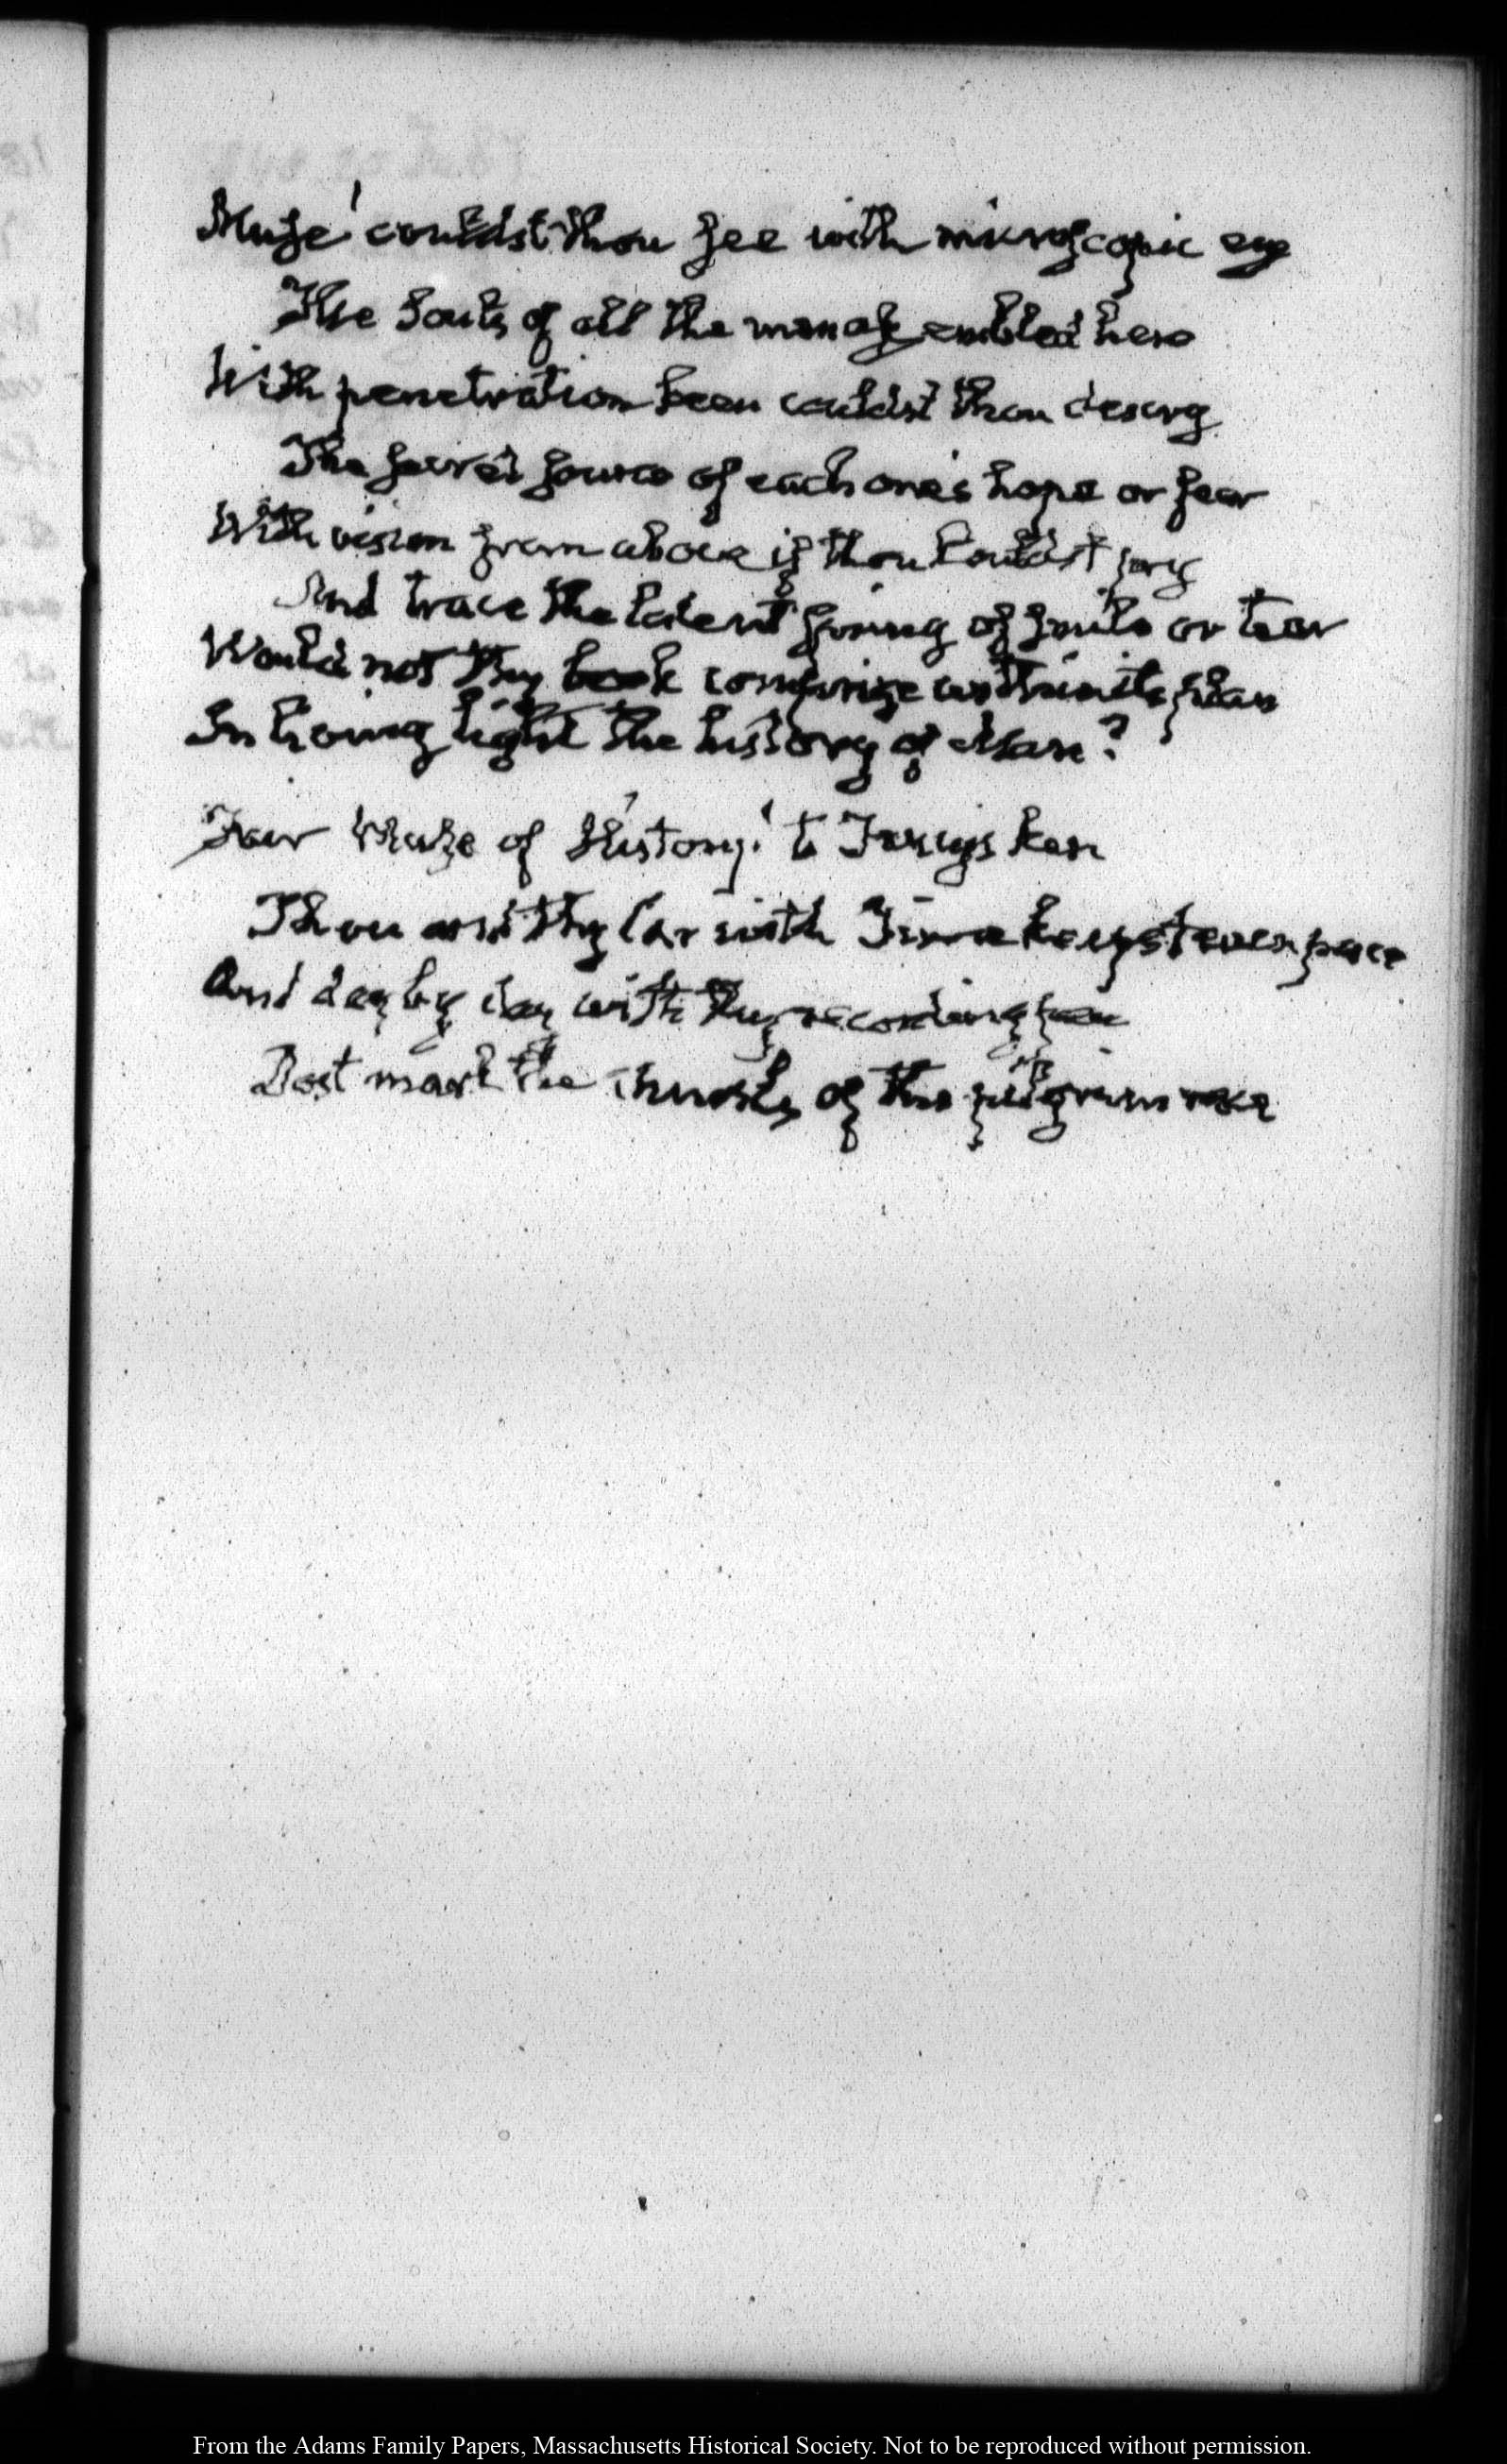 Muse! couldst thou see with microscopic eye
The Souls of all the men assembled here
With penetration keen couldst thou descry
The secret source of each one's hope or fear
With vision from above if thou couldst pry
And trace the latent spring of smile or tear
Would not thy book comprize within its plan
In living light the history of Man?
Fair Muse of History! to Fancy's ken
Thou and thy Car with Time keepst even pace
And day by day with thy recording pen
Dost mark the of the pilgrim race
From the Adams Family Papers, Massachusetts Historical Society. Not to be reproduced without permission.